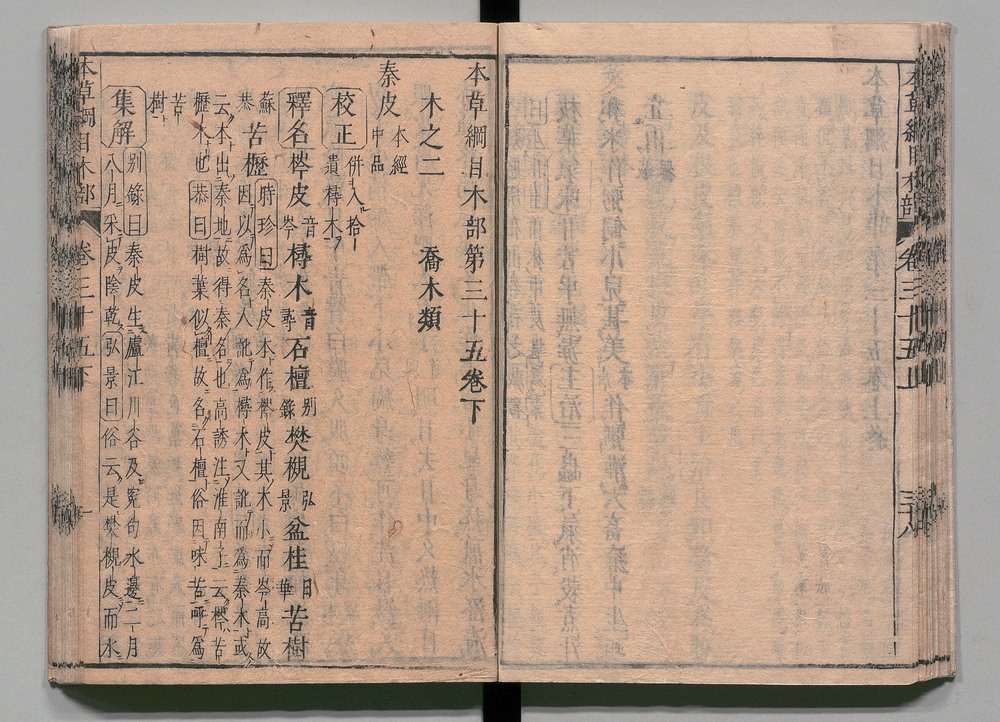 本草綱目木部 卷三十五上 三十八
本草綱目木部第三十五卷下
木之二 喬木類
秦皮 本經中品
校正 併入拾遺樳木
釋名 梣皮 音岑 樳木 音尋 石檀 別錄 樊槻 弘景 盆桂 日華 苦樹
蘇恭 苦櫪 時珍曰秦皮本作梣皮其木小而岑高故
因以爲名人訛爲樳木又訛而爲秦木或
云本出秦地故得秦名也高誘注淮南子云梣苦
櫪木也恭曰樹葉似檀故名石檀俗因味苦呼爲
苦樹
集解 別錄曰秦皮生廬江川谷及冤句水邊二月
八月采皮陰乾弘景曰俗云是樊槻皮而水
本草綱目木部 卷三十五下 一